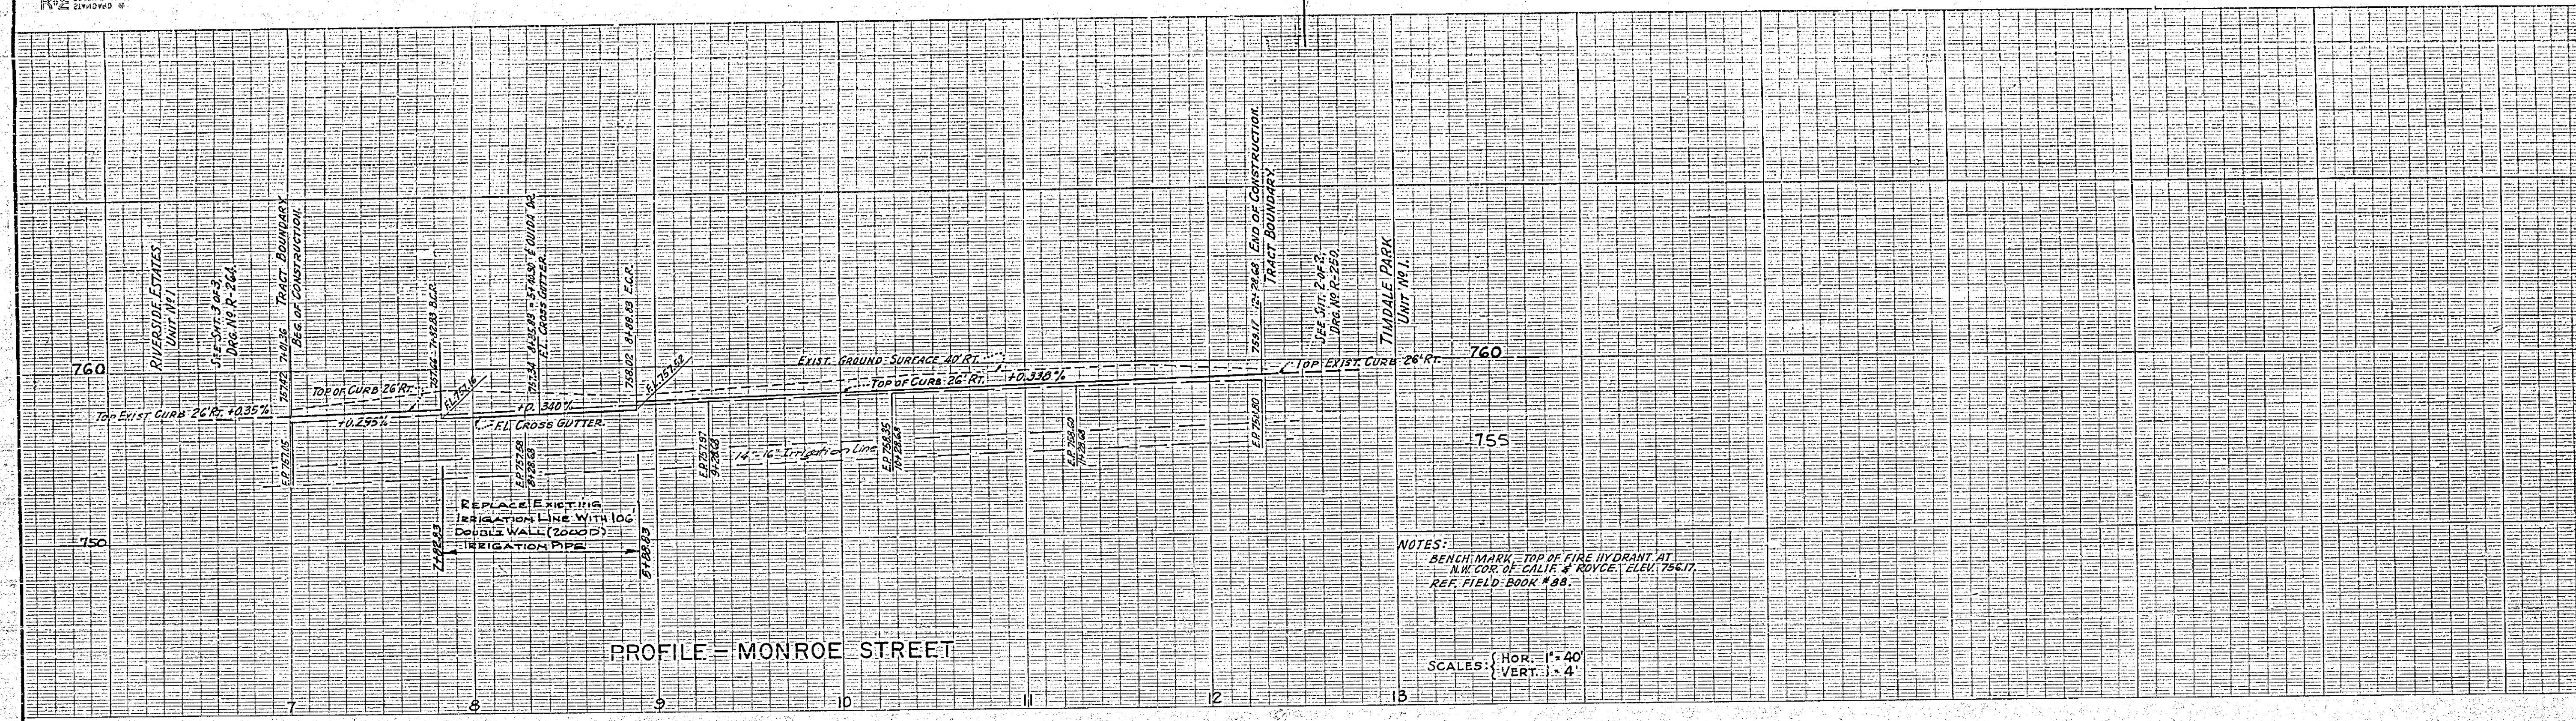 K+E STANDARD ®
RIVERSIDE ESTATES
UNIT Nº 1
SEE SHT. 3 OF 3,
DRG. Nº R-264.
757.42 7+01.36 TRACT BOUNDARY
BEG. OF CONSTRUCTION.
757.66 7+82.83 B.C.R.
℄ OUIDA DR.
F.L. CROSS GUTTER.
758.02 8+88.83 E.C.R.
759.17 12+28.68 END OF CONSTRUCTION.
TRACT BOUNDARY.
SEE SHT. 2 OF 2,
DRG. Nº R-250.
TIMDALE PARK
UNIT Nº 1.
760
TOP EXIST CURB 26' RT. +0.35%
TOP OF CURB 26' RT.
F.L. 757.16
F.L. 757.52
EXIST. GROUND SURFACE 40' RT.
TOP OF CURB 26' RT. +0.338%
TOP EXIST. CURB 26' RT.
760
+0.295%
+0.340%
F.L. CROSS GUTTER.
755
E.P. 757.15
E.P. 757.58
8+28.68
E.P. 757.97
9+28.68
14"-16" Irrigation Line
E.P. 758.35
10+28.68
E.P. 758.60
11+28.68
E.P. 758.80
750
REPLACE EXISTING
IRRIGATION LINE WITH 106'
DOUBLE WALL (2000D)
IRRIGATION PIPE
7+82.83
8+88.83
NOTES:
BENCH MARK - TOP OF FIRE HYDRANT AT
N.W. COR. OF CALIF. & ROYCE. ELEV. 756.17.
REF. FIELD BOOK #88.
PROFILE - MONROE STREET
SCALES: { HOR. 1" = 40'
VERT. 1" = 4'
7 8 9 10 11 12 13